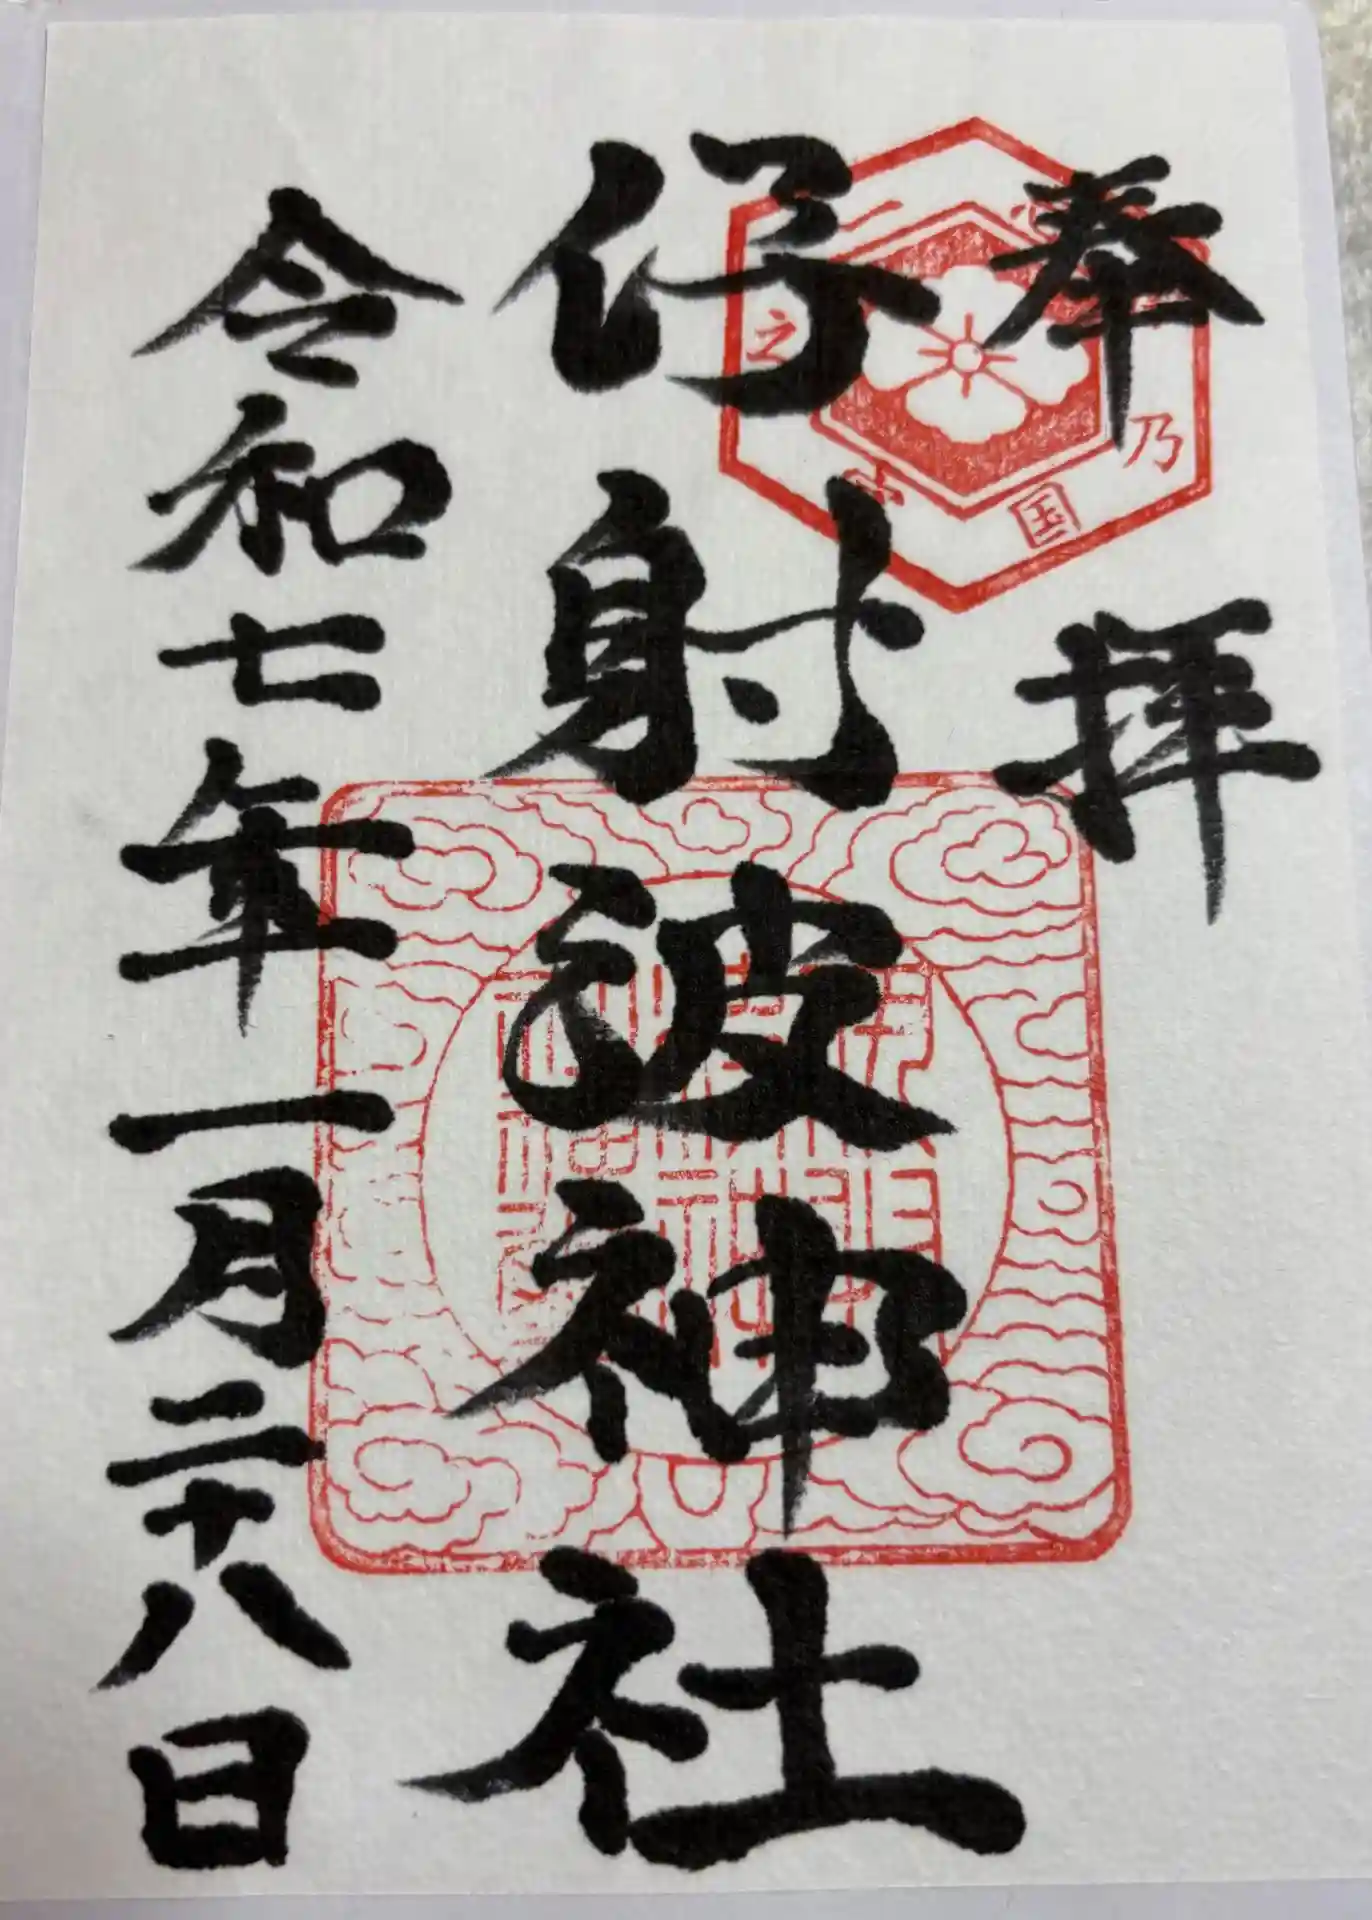 奉拝
伊射波神社
令和七年一月二十八日
乃国
一之